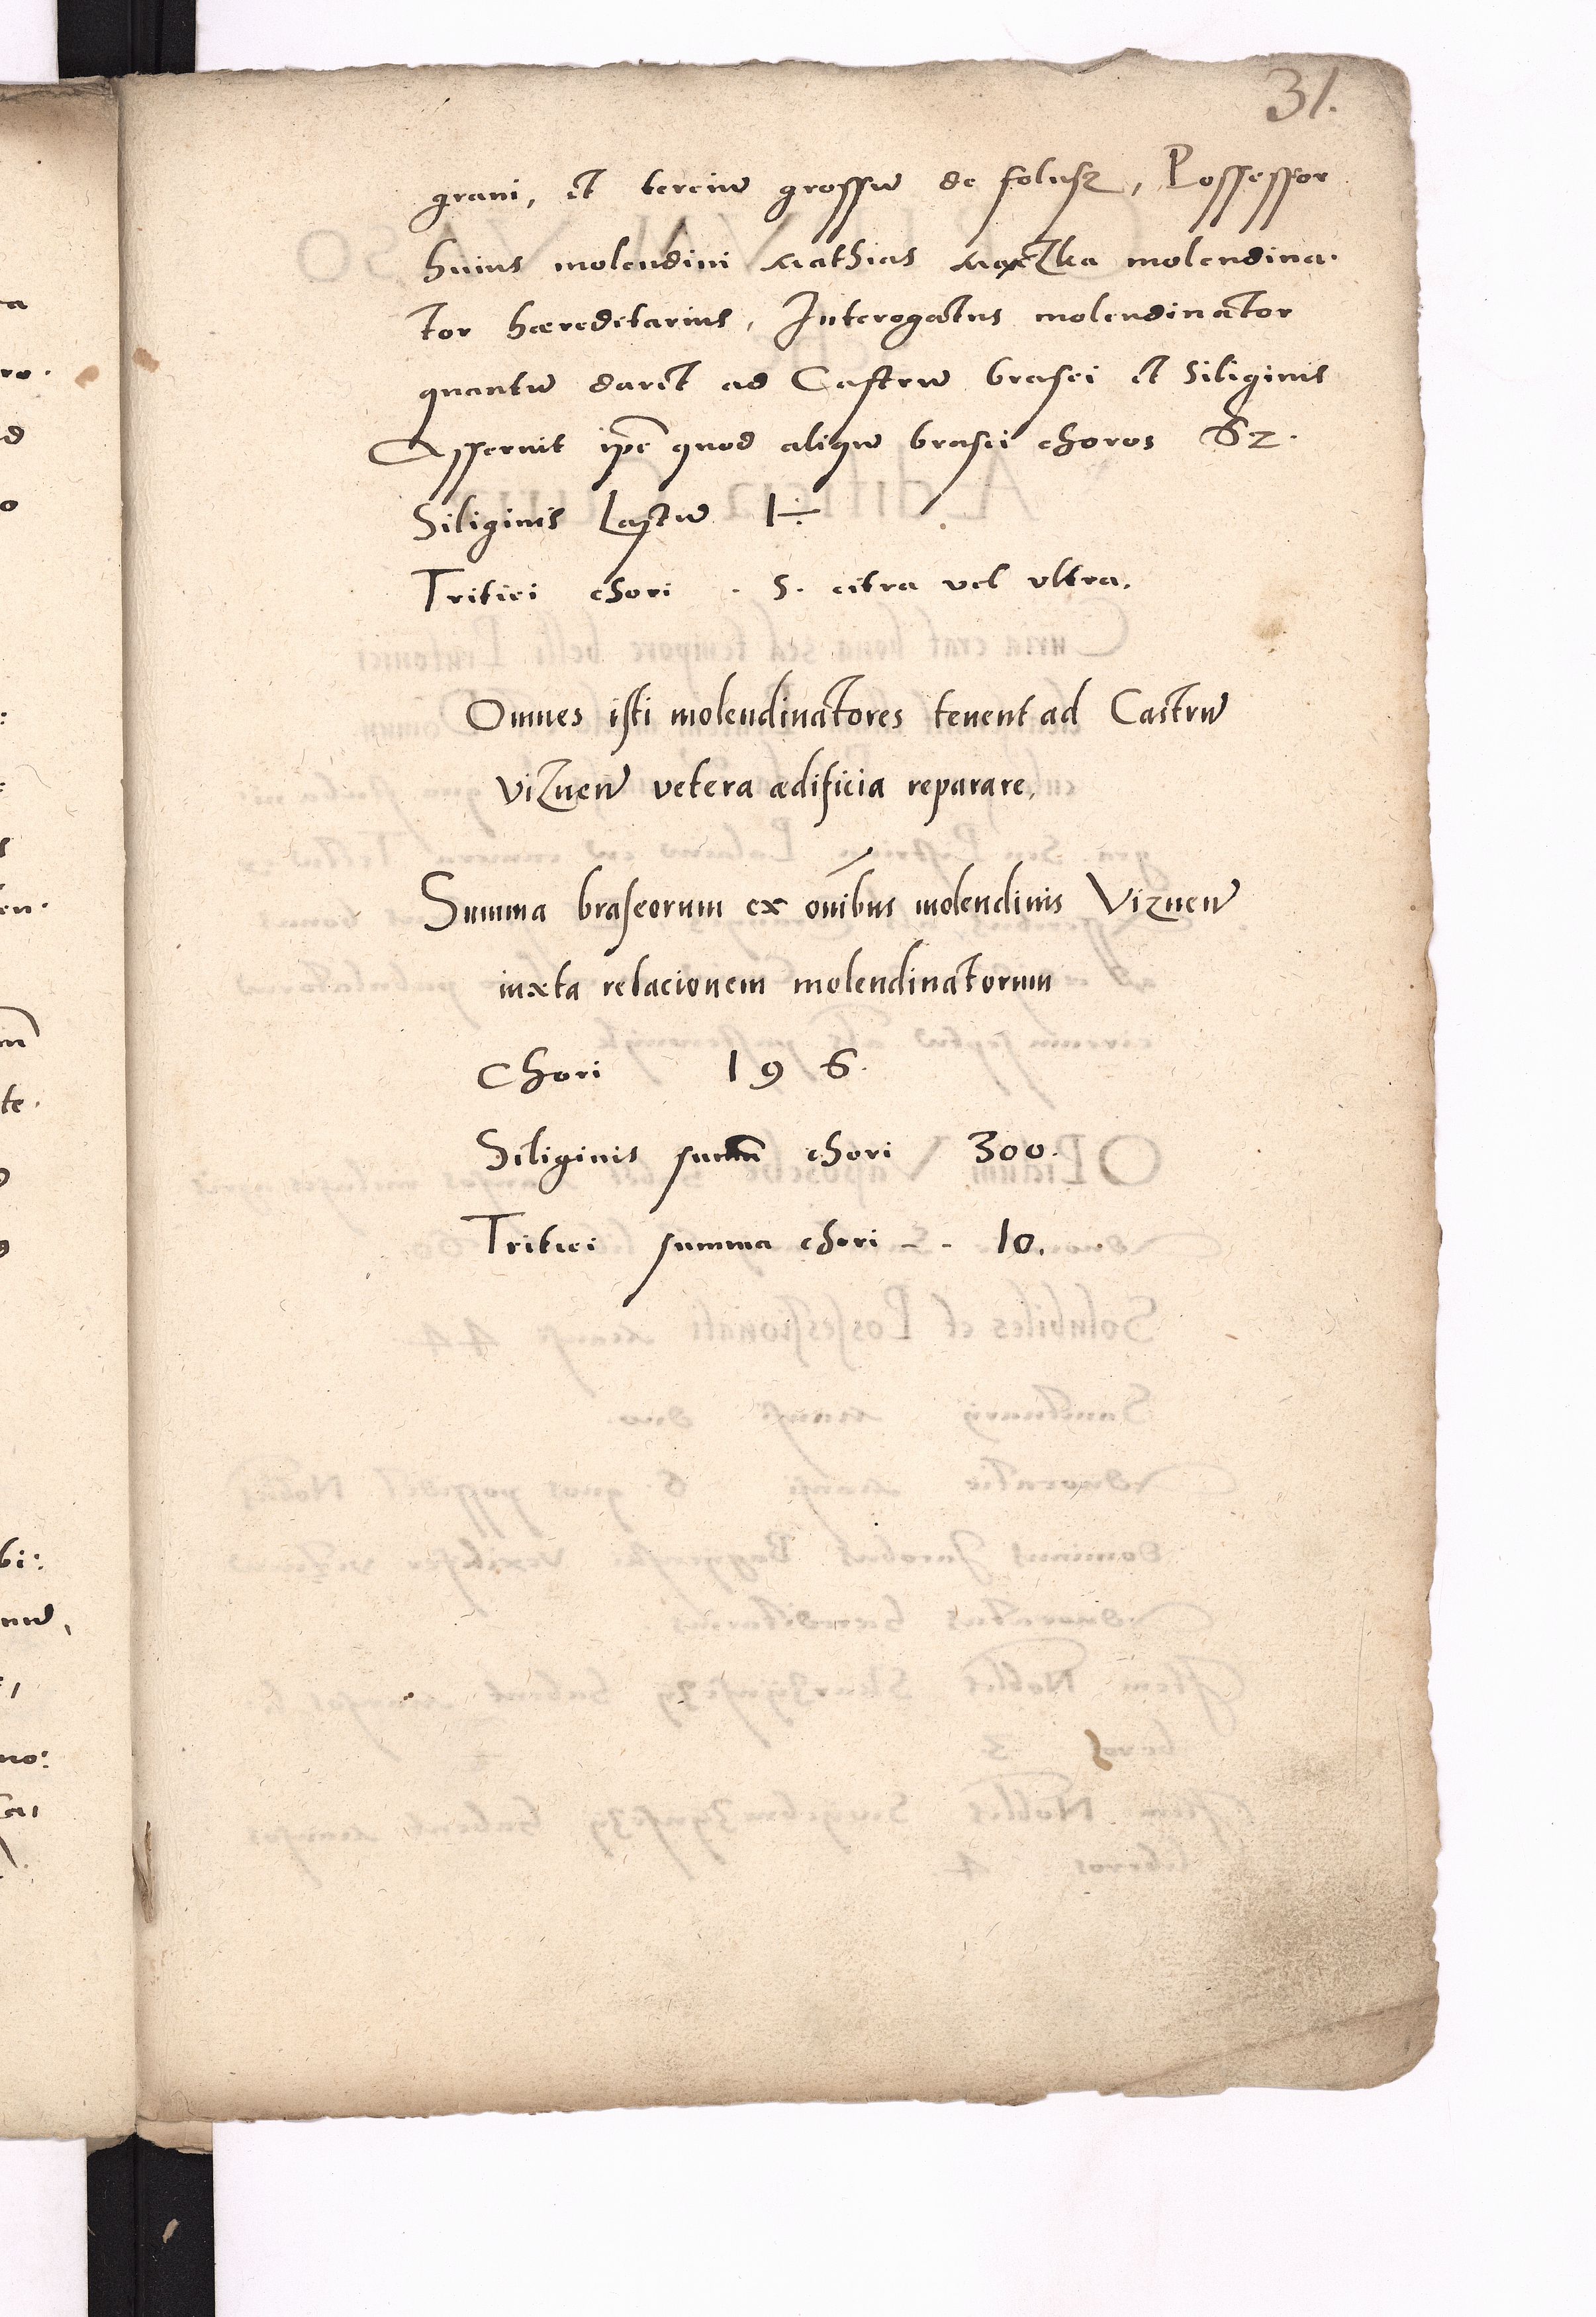 31.
grani, et terciũ grossũ de folusz, Possessor
huius molendini Mathias Maczka molendina.
tor hæreditarius, Interogatus molendinator
quantũ daret ad Castrũ brasei et Siliginis
Asseruit ipẽ quod aliqũ brasei choros 62.
Siliginis Lastũ 1÷
Tritici chori . 5. citra vel vltra.
Omnes isti molendinatores tenent ad Castrũ
Viznẽn vetera ædificia reparare.
Summa braseorum ex oñibus molendinis Viznen̄
iuxta relacionem molendinatorum
Chori 196.
Siliginis sum̃ chori 300.
Tritici summa chori - - 10.